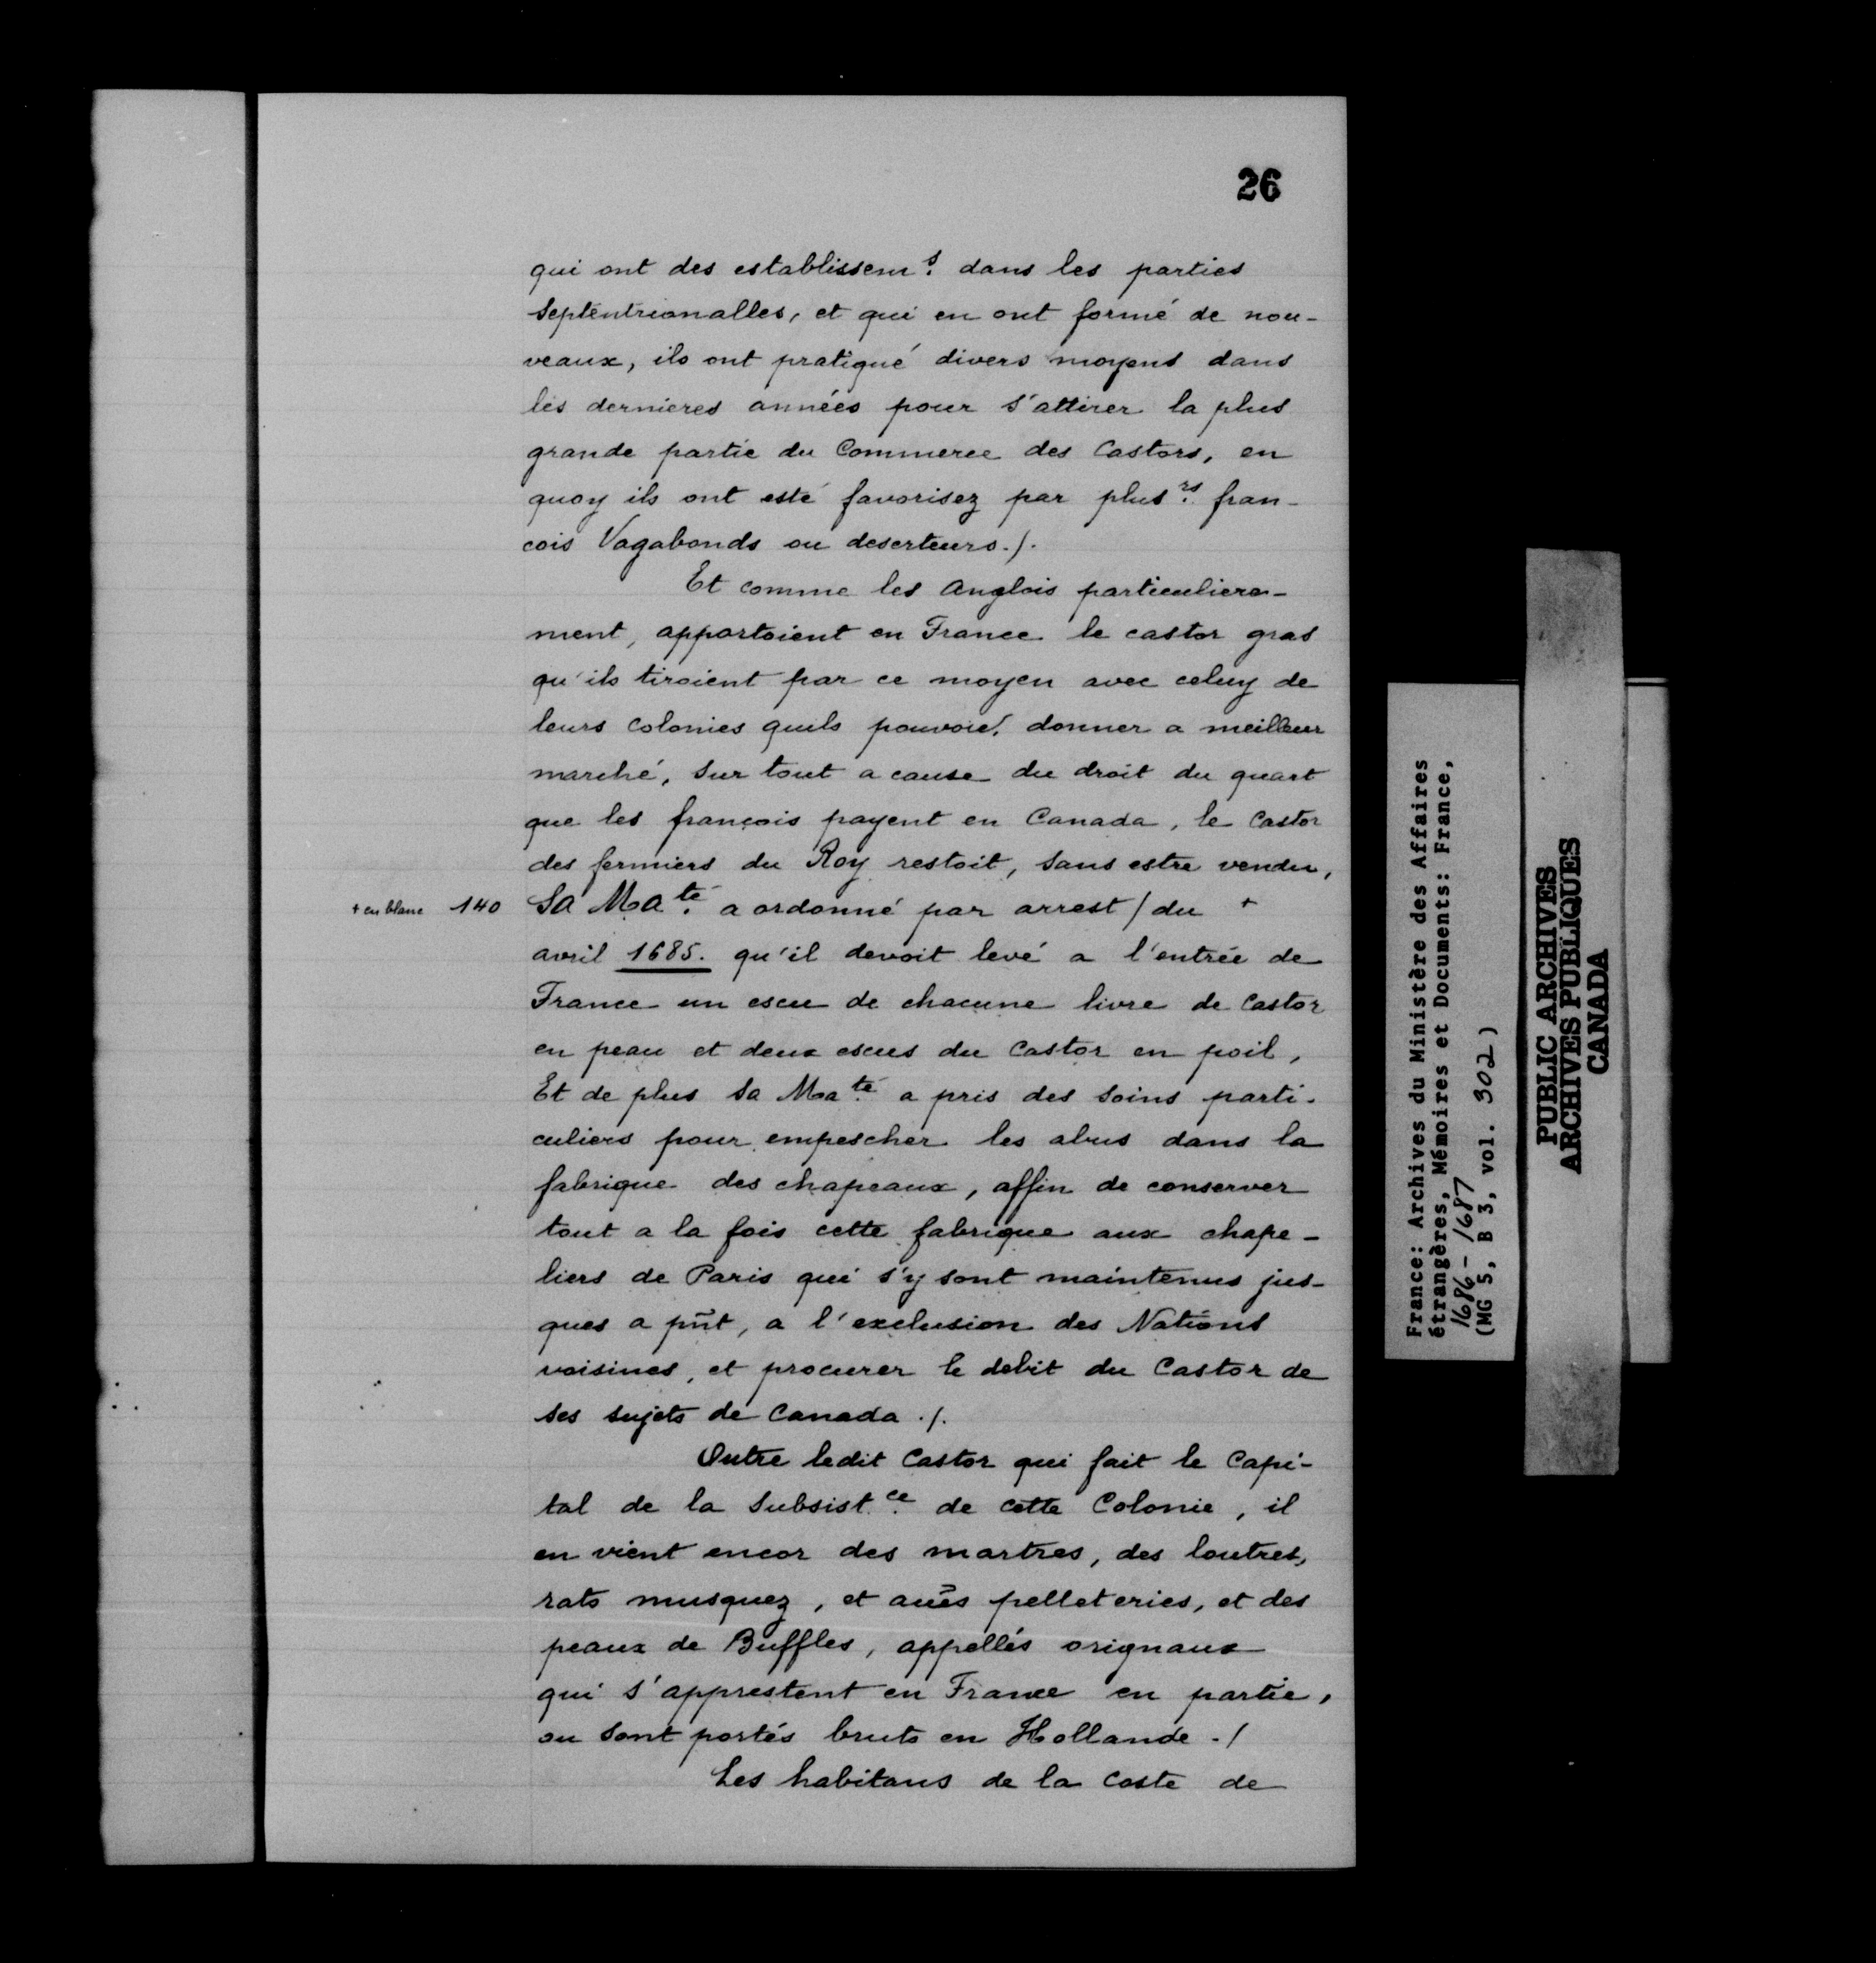 26
qui ont des establissem.s dans les parties
Septentrionalles, et qui en ont formé de nou-
veaux, ils ont pratiqué divers moyens dans
les dernieres années pour s'attirer la plus
grande partie du Commerce des Castors, en
quoy ils ont esté favorisez par plus.rs fran-
cois Vagabonds ou deserteurs./.
Et comme les Anglois particuliere-
ment, apportoient en France le castor gras
qu'ils tiroient par ce moyen avec celuy de
leurs colonies quils pouvoie.t donner a meilleur
marché, sur tout a cause du droit du quart
que les françois payent en Canada, le Castor
des fermiers du Roy restoit, sans estre vendu,
+ en blanc 140 Sa Ma.té a ordonné par arrest / du +
avril 1685. qu'il devoit levé a l'entrée de
France un escu de chacune livre de Castor
en peau et deux escus du Castor en poil,
Et de plus sa Ma.té a pris des soins parti-
culiers pour empescher les abus dans la
fabrique des chapeaux, affin de conserver
tout a la fois cette fabrique aux chape-
liers de Paris qui s'y sont maintenus jus-
ques a pñt, a l'exclusion des Nations
voisines, et procurer le debit du Castor de
ses sujets de Canada ./.
Outre ledit Castor qui fait le Capi-
tal de la Subsist.ce de cette Colonie, il
en vient encor des martres, des loutres,
rats musquez, et aũes pelleteries, et des
peaux de Buffles, appellés orignaux
qui s'apprestent en France en partie,
ou sont portés bruts en Hollande ./
Les habitans de la Coste de
France: Archives du Ministère des Affaires
étrangères, Mémoires et Documents: France,
1686-1687
(MG 5, B 3, vol. 302)
PUBLIC ARCHIVES
ARCHIVES PUBLIQUES
CANADA